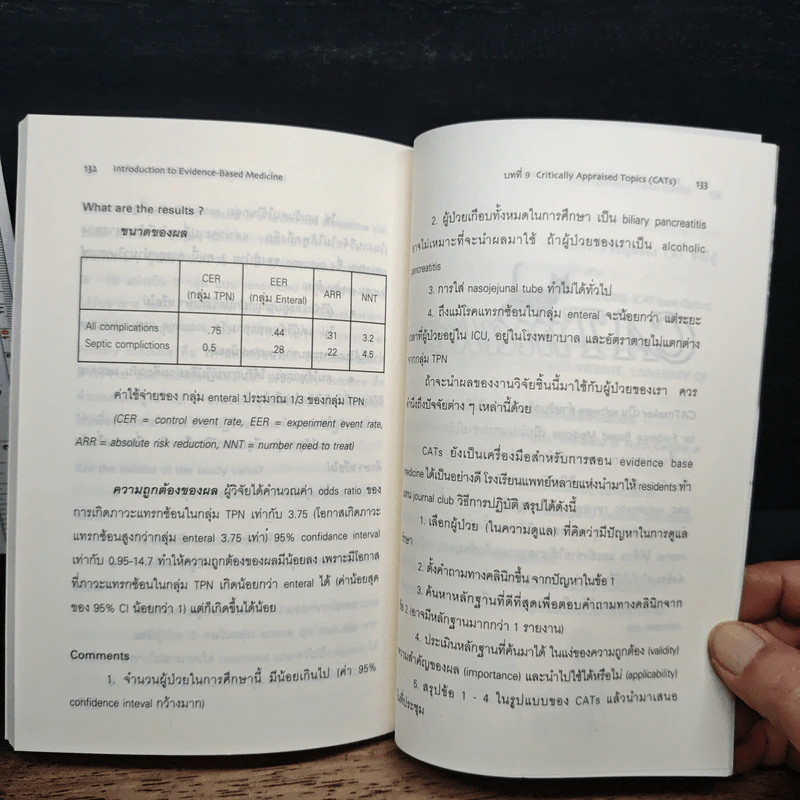 132 Introduction to Evidence-Based Medicine
What are the results ?
ขนาดของผล
CER (กลุ่ม TPN) EER (กลุ่ม Enteral) ARR NNT
All complications .75 .44 .31 3.2
Septic complictions 0.5 .28 .22 4.5
ค่าใช้จ่ายของ กลุ่ม enteral ประมาณ 1/3 ของกลุ่ม TPN
(CER = control event rate, EER = experiment event rate,
ARR = absolute risk reduction, NNT = number need to treat)
ความถูกต้องของผล ผู้วิจัยได้คำนวณค่า odds ratio ของ
การเกิดภาวะแทรกซ้อนในกลุ่ม TPN เท่ากับ 3.75 (โอกาสเกิดภาวะ
แทรกซ้อนสูงกว่ากลุ่ม enteral 3.75 เท่า) 95% confidance interval
เท่ากับ 0.95-14.7 ทำให้ความถูกต้องของผลมีน้อยลง เพราะมีโอกาส
ที่ภาวะแทรกซ้อนในกลุ่ม TPN เกิดน้อยกว่า enteral ได้ (ค่าน้อยสุด
ของ 95% CI น้อยกว่า 1) แต่ก็เกิดขึ้นได้น้อย
Comments
1. จำนวนผู้ป่วยในการศึกษานี้ มีน้อยเกินไป (ค่า 95%
confidence inteval กว้างมาก)
บทที่ 9 Critically Appraised Topics (CATs) 133
2. ผู้ป่วยเกือบทั้งหมดในการศึกษา เป็น biliary pancreatitis
อาจไม่เหมาะที่จะนำผลมาใช้ ถ้าผู้ป่วยของเราเป็น alcoholic
pancreatitis
3. การใส่ nasojejunal tube ทำไม่ได้ทั่วไป
4. ถึงแม้โรคแทรกซ้อนในกลุ่ม enteral จะน้อยกว่า แต่ระยะ
เวลาที่ผู้ป่วยอยู่ใน ICU, อยู่ในโรงพยาบาล และอัตราตายไม่แตกต่าง
จากกลุ่ม TPN
ถ้าจะนำผลของงานวิจัยชิ้นนี้มาใช้กับผู้ป่วยของเรา ควร
คำนึงถึงปัจจัยต่าง ๆ เหล่านี้ด้วย
CATs ยังเป็นเครื่องมือสำหรับการสอน evidence base
medicine ได้เป็นอย่างดี โรงเรียนแพทย์หลายแห่งนำมาให้ residents ทำ
journal club วิธีการปฏิบัติ สรุปได้ดังนี้
1. เลือกผู้ป่วย (ในความดูแล) ที่คิดว่ามีปัญหาในการดูแล
รักษา
2. ตั้งคำถามทางคลินิกขึ้น จากปัญหาในข้อ 1
3. ค้นหาหลักฐานที่ดีที่สุดเพื่อตอบคำถามทางคลินิกจาก
ข้อ 2 (อาจมีหลักฐานมากกว่า 1 รายงาน)
4. ประเมินหลักฐานที่ค้นมาได้ ในแง่ของความถูกต้อง (validity)
ความสำคัญของผล (importance) และนำไปใช้ได้หรือไม่ (applicability)
5. สรุปข้อ 1 - 4 ในรูปแบบของ CATs แล้วนำมาเสนอ
ในที่ประชุม